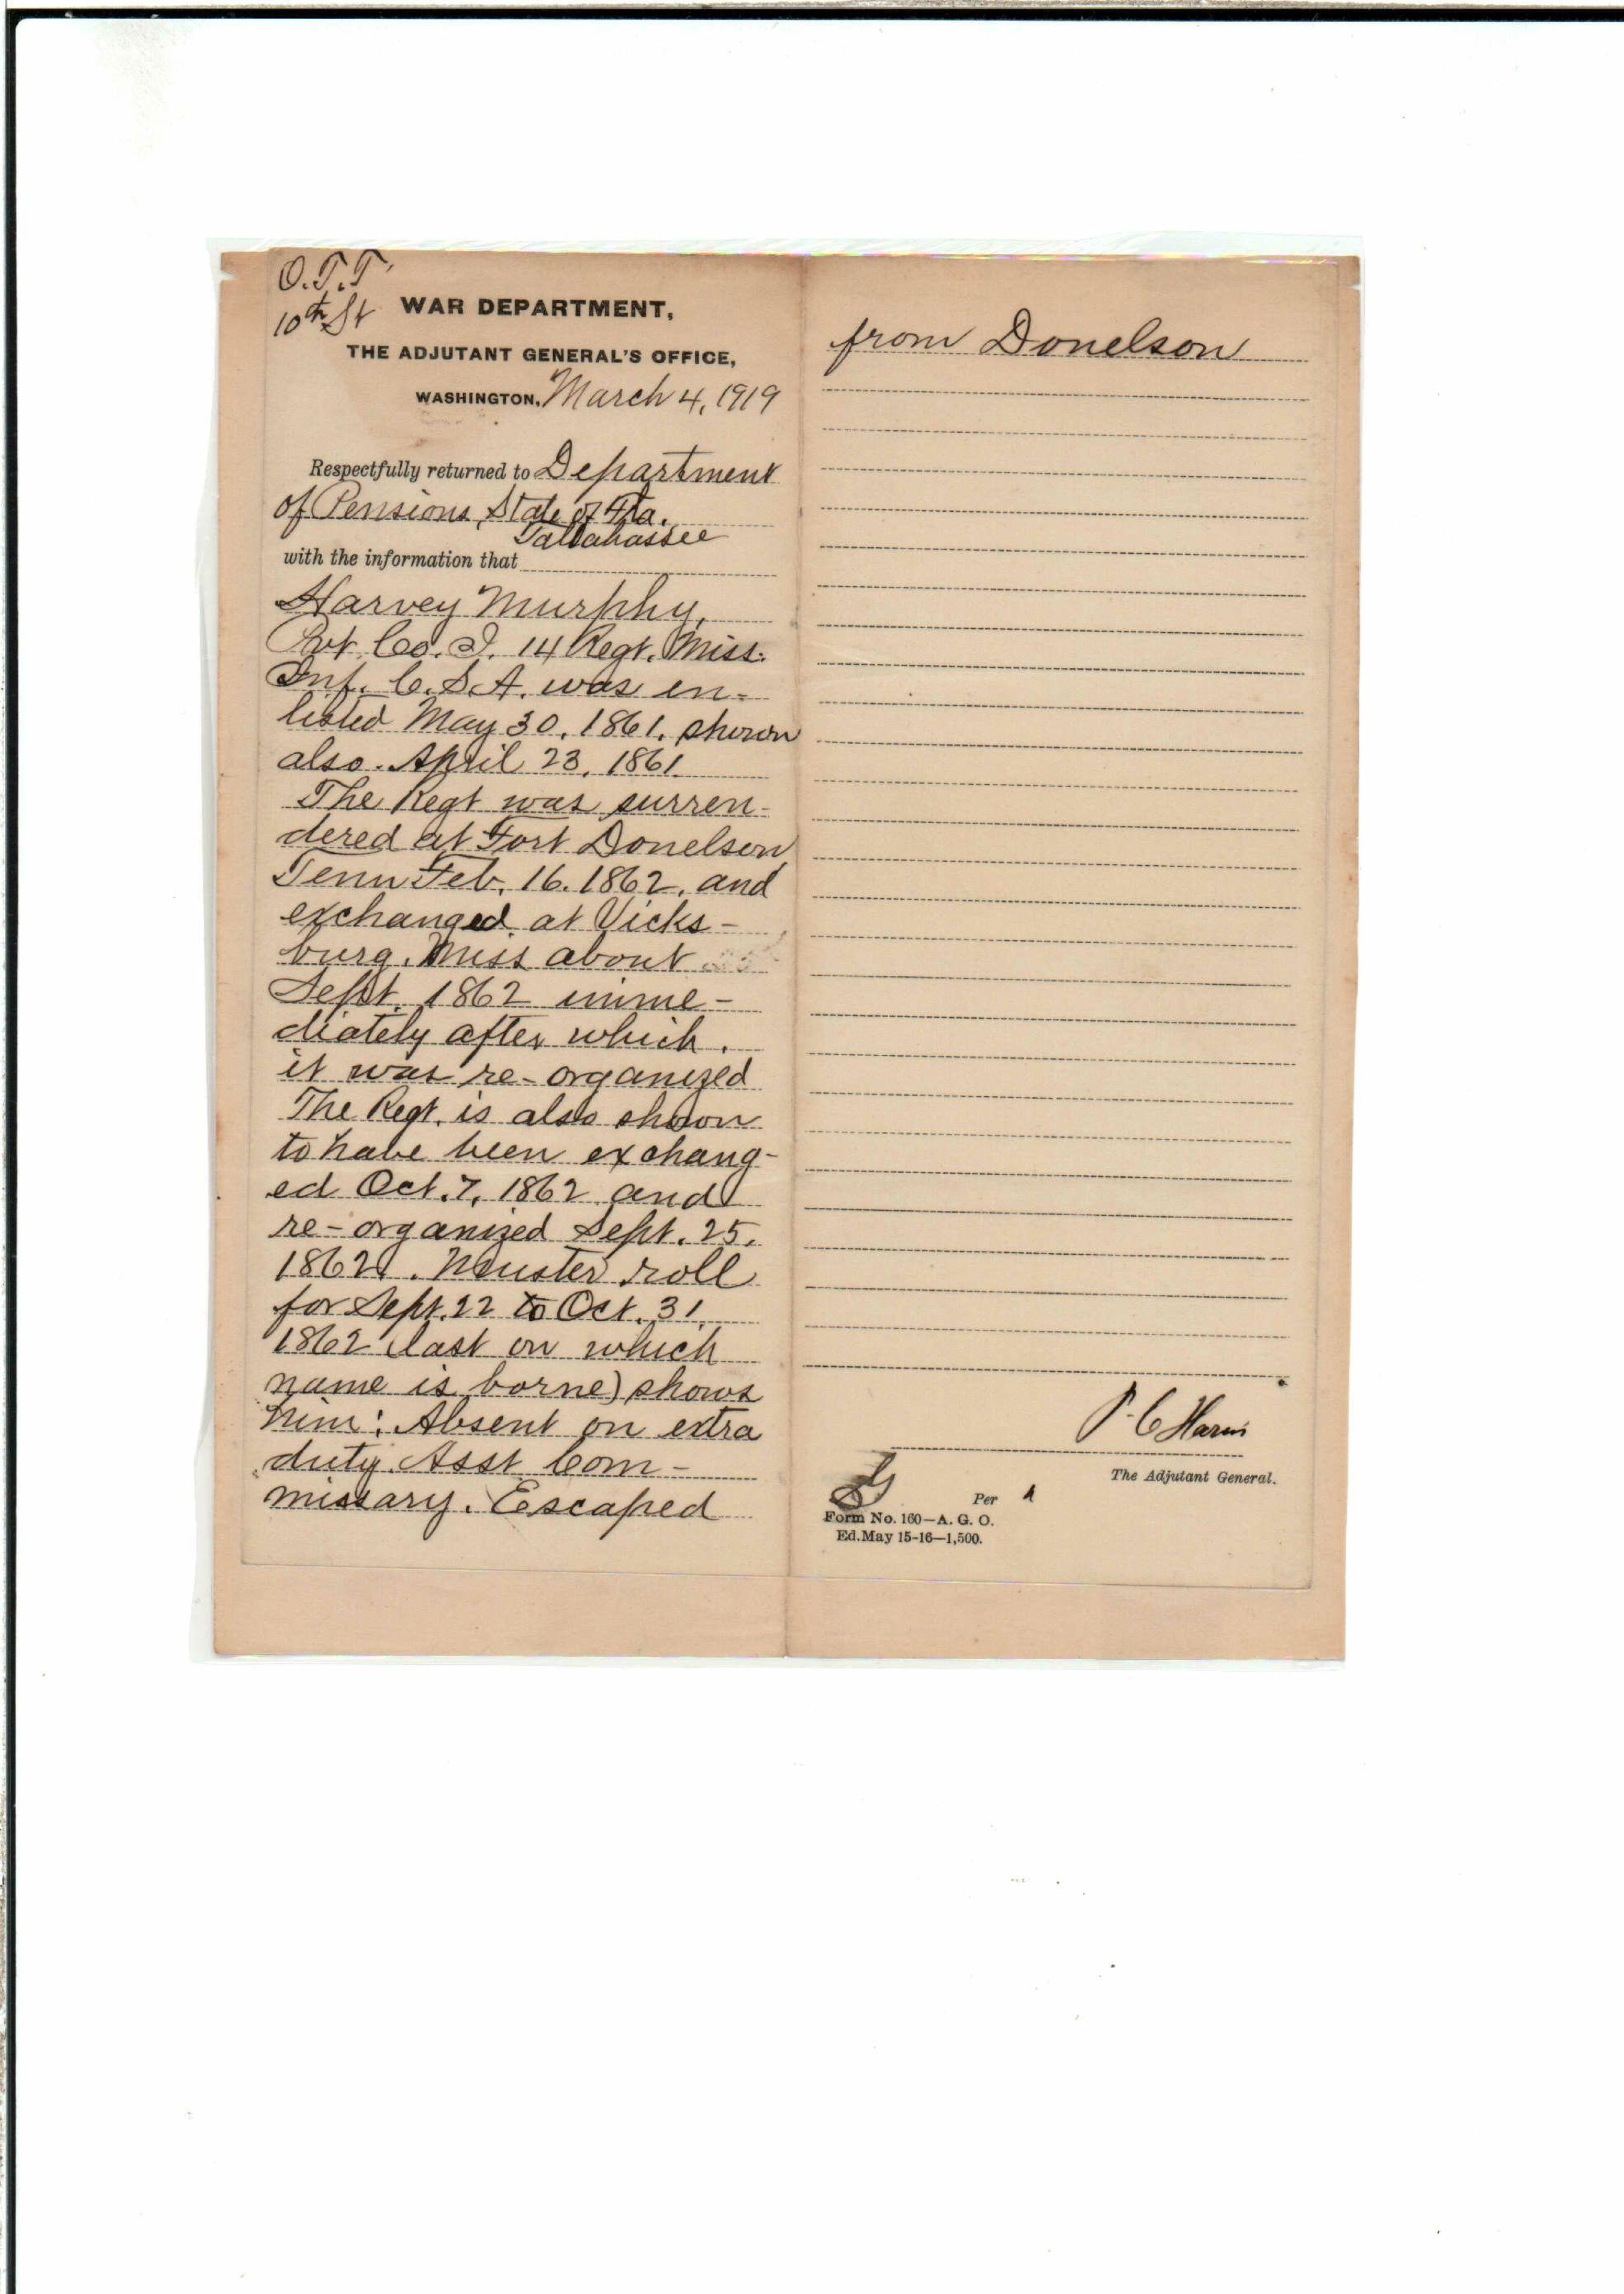 O.T.T.
10th St
WAR DEPARTMENT,
THE ADJUTANT GENERAL'S OFFICE,
WASHINGTON, March 4, 1919
Respectfully returned to Department
of Pensions, State of Fla.
Tallahassee
with the information that
Harvey Murphy,
Pvt. Co. I. 14 Regt. Miss.
Inf. C.S.A. was en-
listed May 30, 1861, shown
also April 23, 1861.
The Regt was surren-
dered at Fort Donelson,
Tenn Feb. 16. 1862, and
exchanged at Vicks-
burg, Miss about
Sept. 1862 imme-
diately after which
it was re-organized
The Regt. is also shown
to have been exchang-
ed Oct. 7, 1862 and
re-organized Sept. 25,
1862. Muster roll
for Sept. 22 to Oct. 31,
1862 (last on which
name is borne) shows
him: Absent on extra
duty. Asst Com-
missary. Escaped
from Donelson
P. C. Harris
The Adjutant General.
Per
Form No. 160—A. G. O.
Ed. May 15-16—1,500.